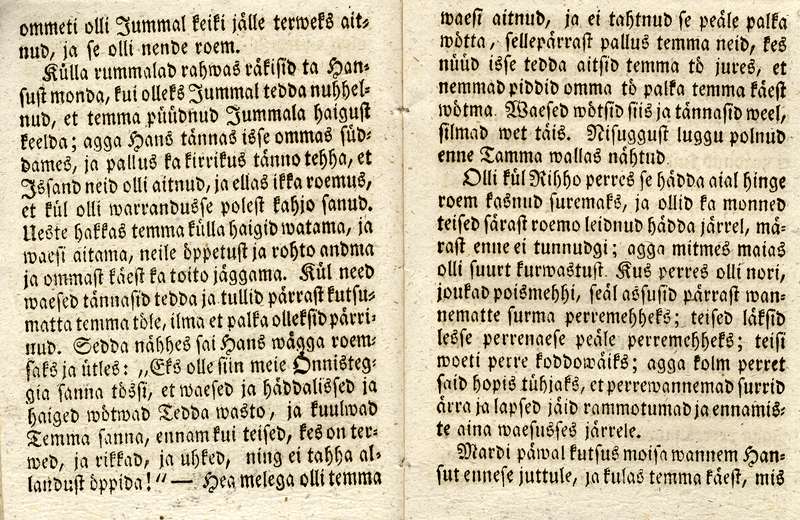 ommeti olli Jummal keiki jälle terweks ait-
nud, ja se olli nende roem.
Külla rummalad rahwas räkisid ta Han-
sust monda, kui olleks Jummal tedda nuhhel-
nud, et temma püüdnud Jummala haigust
keelda; agga Hans tännas isse ommas süd-
dames, ja pallus ka kirrikus tänno tehha, et
Issand neid olli aitnud, ja ellas ikka roemus,
et kül olli warrandusse polest kahjo sanud.
Ueste hakkas temma külla haigid watama, ja
waesi aitama, neile öppetust ja rohto andma
ja ommast käest ka toito jäggama. Kül need
waesed tännasid tedda ja tullid pärrast kutsu-
matta temma töle, ilma et palka olleksid pärri-
nud. Sedda nähhes sai Hans wägga roem-
saks ja ütles: „Eks olle siin meie Önnisteg-
gia sanna tössi, et waesed ja häddalissed ja
haiged wötwad Tedda wasto, ja kuulwad
Temma sanna, ennam kui teised, kes on ter-
wed, ja rikkad, ja uhked, ning ei tahha al-
landust öppida!“ — Hea melega olli temma
waesi aitnud, ja ei tahtnud se peäle palka
wötta, sellepärrast pallus temma neid, kes
nüüd isse tedda aitsid temma tö jures, et
nemmad piddid omma tö palka temma käest
wötma. Waesed wötsid siis ja tännasid weel,
silmad wet täis. Nisuggust luggu polnud
enne Tamma wallas nähtud.
Olli kül Rihho perres se hädda aial hinge
roem kasnud suremaks, ja ollid ka monned
teised särast roemo leidnud hädda järrel, mä-
rast enne ei tunnudgi; agga mitmes maias
olli suurt kurwastust. Kus perres olli nori,
joukad poismehhi, seäl assusid pärrast wan-
nematte surma perremehheks; teised läksid
lesse perrenaese peäle perremehheks; teisi
woeti perre koddowäiks; agga kolm perret
said hopis tühjaks, et perrewannemad surrid
ärra ja lapsed jäid rammotumad ja ennamis-
te aina waesusses järrele.
Mardi päwal kutsus moisa wannem Han-
sut ennese juttule, ja kulas temma käest, mis